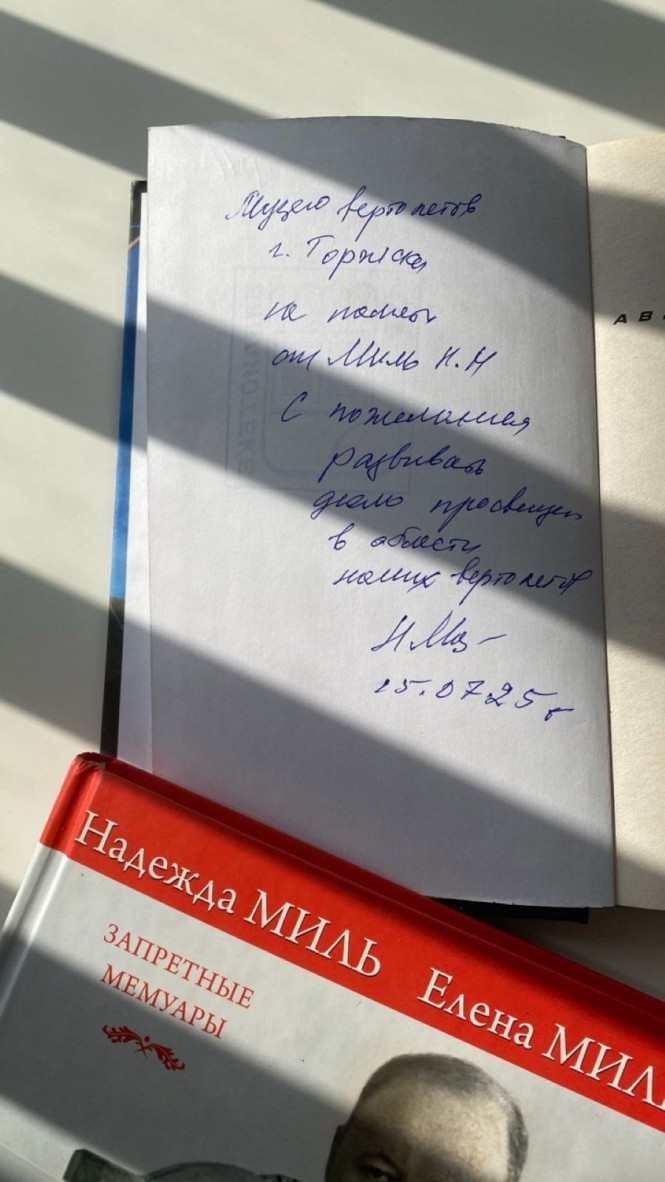 Музею вертолетов
г. Торжка
на память
от Миль Н.Н
С пожеланиея
развивать
дело просвещен
в области
наших вертолетов
15.07.25г
АВ
Надежда МИЛЬ Елена МИЛЬ
ЗАПРЕТНЫЕ
МЕМУАРЫ